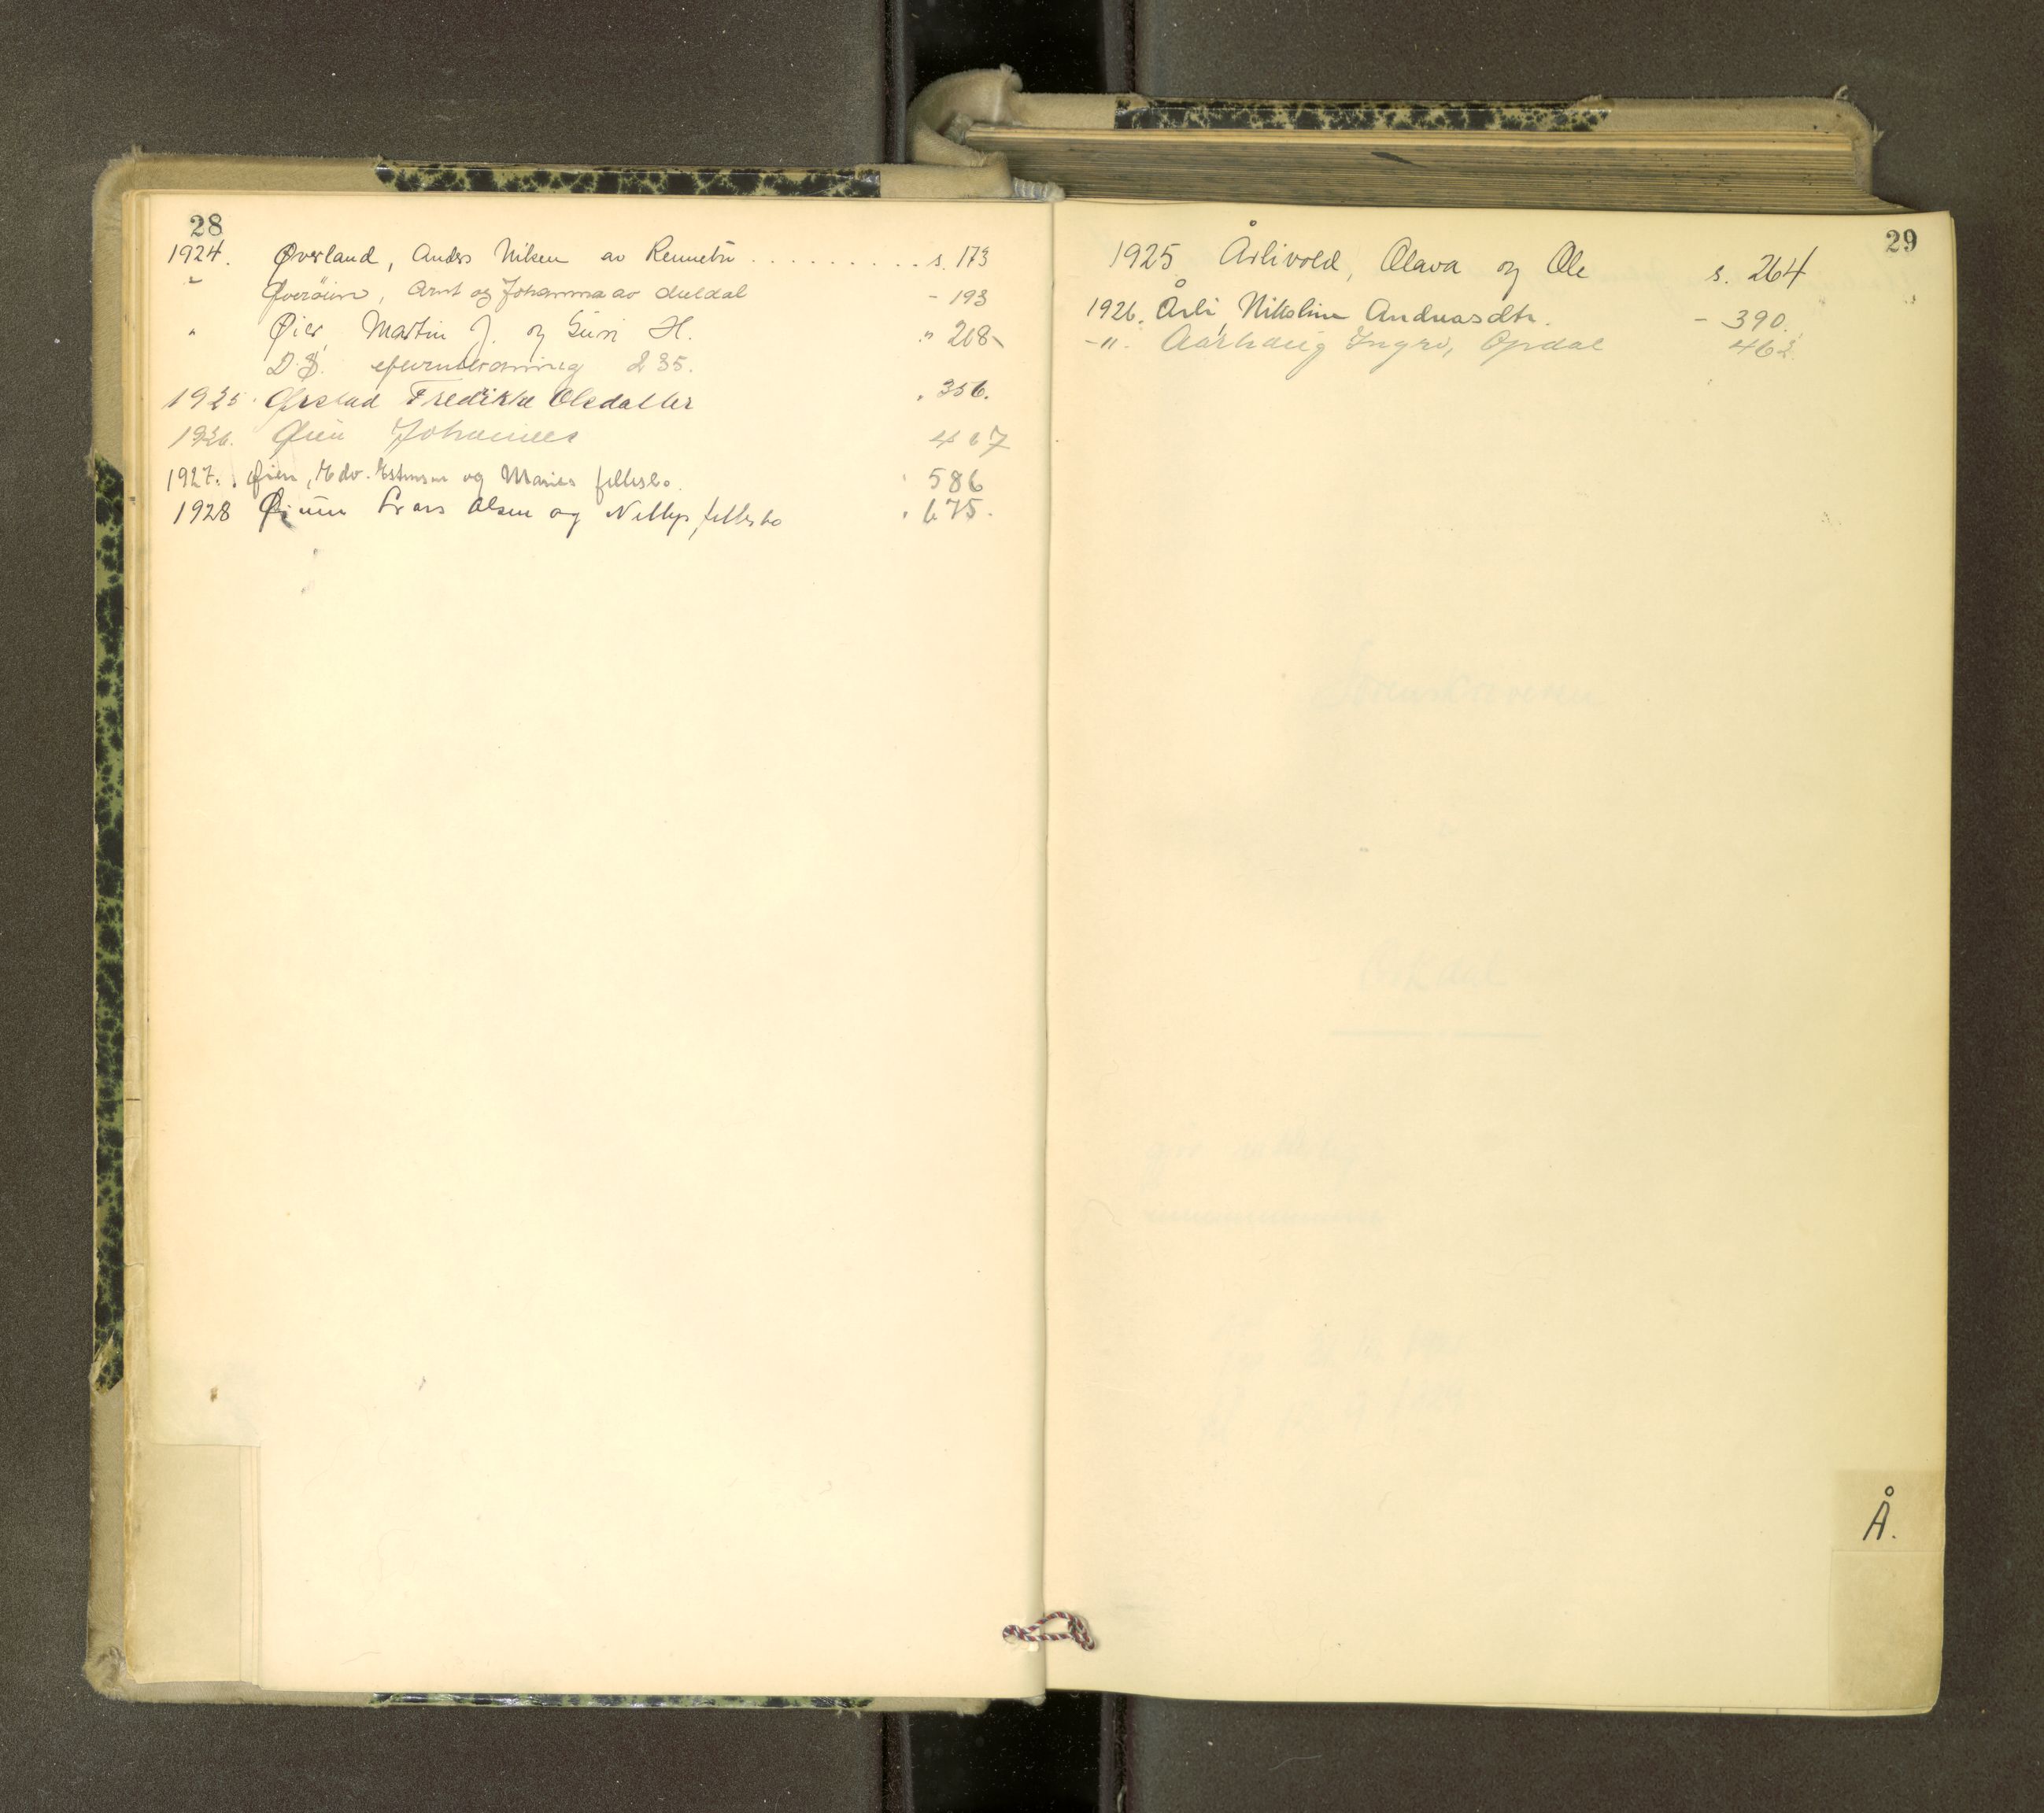 28
1924. Øverland, Anders Nilsen av Rennebu . . . . . . . . . s. 173
" Øverøien, Arnt og Johanna av Meldal - 193
" Øien, Martin J. og Guri H. " 208
D.S. 235.
1925. Ørstad Fredrikke Olsdatter 356.
1926. Øien Johannes 467
1927. Øien, Edv. Estensen og Maries fellesbo. 586
1928 Lars Olsen og Nellys fellesbo 675.
29
1925 Årlivold, Olava og Ole s. 264
1926. Årli, Nikoline Andreasdtr. - 390.
-"- Aarhaug Ingri, Opdal 462
Å.